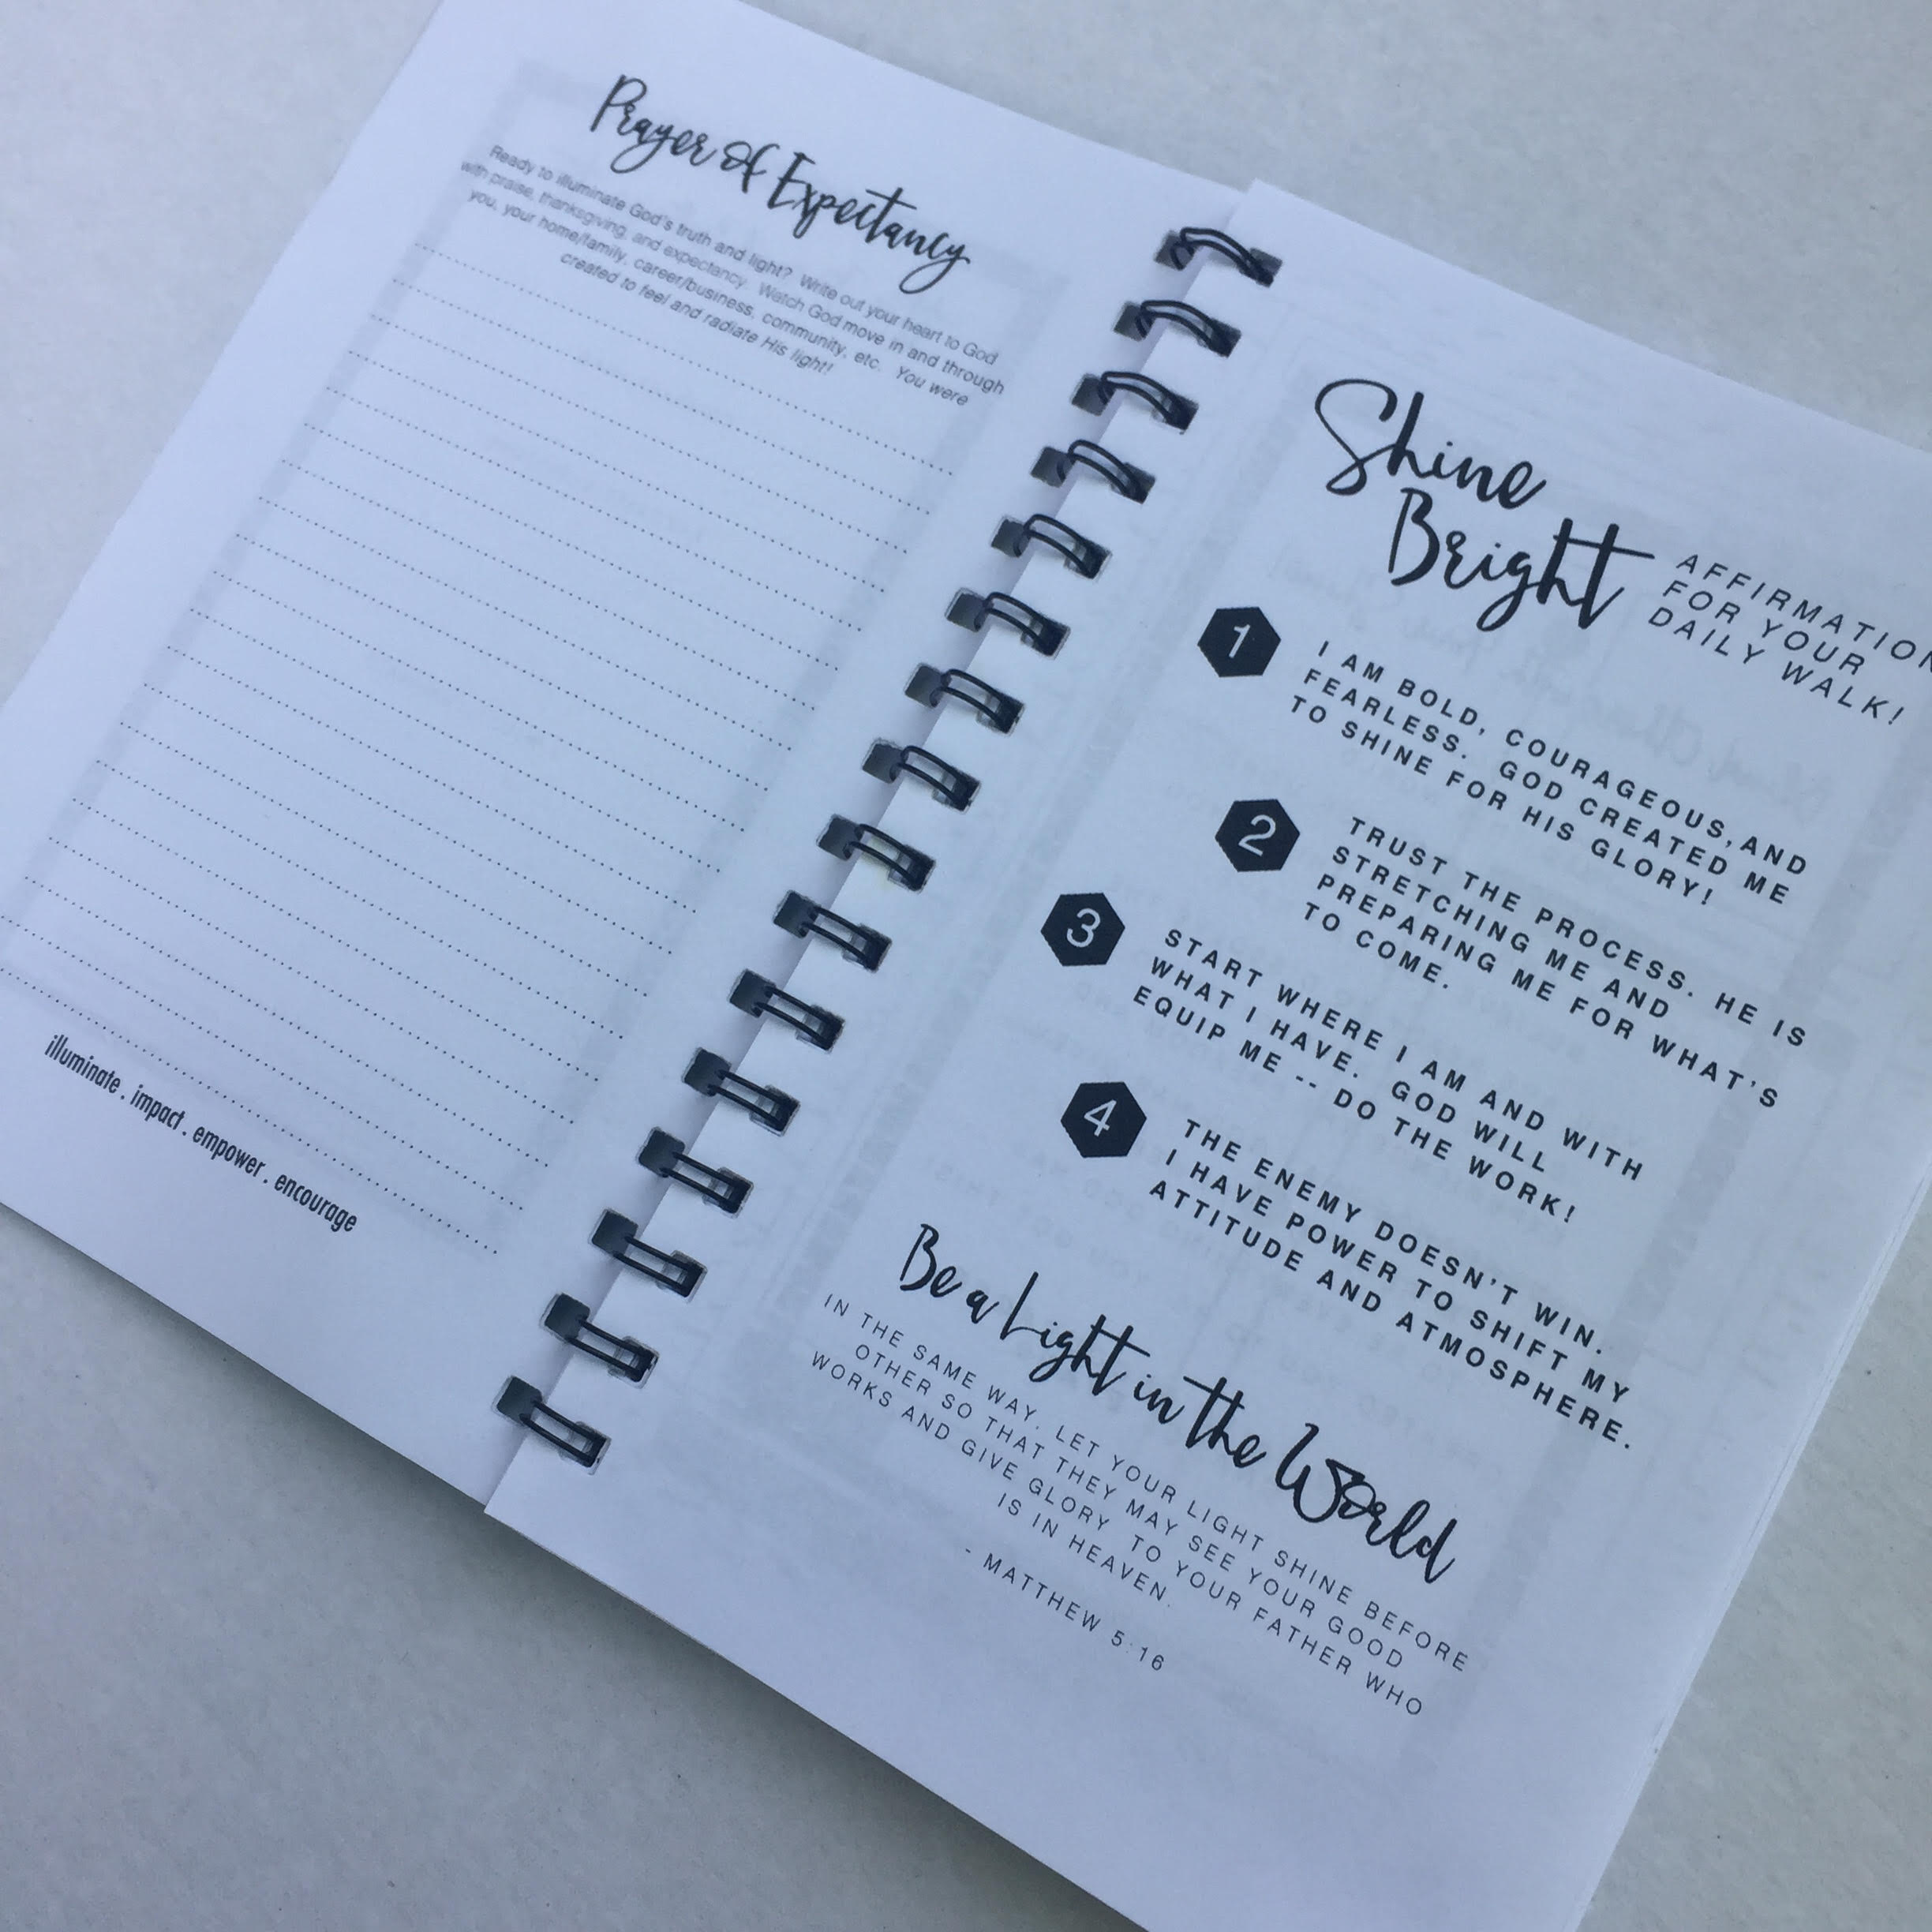 Prayer of Expectancy
Ready to illuminate God's truth and light? Write out your heart to God
with praise, thanksgiving, and expectancy. Watch God move in and through
you, your home/family, career/business, community, etc. You were
created to feel and radiate His light!
illuminate . impact . empower . encourage
Shine
Bright
AFFIRMATION
FOR YOUR
DAILY WALK!
1
I AM BOLD, COURAGEOUS, AND
FEARLESS. GOD CREATED ME
TO SHINE FOR HIS GLORY!
2
TRUST THE PROCESS. HE IS
STRETCHING ME AND
PREPARING ME FOR WHAT'S
TO COME.
3
START WHERE I AM AND WITH
WHAT I HAVE. GOD WILL
EQUIP ME -- DO THE WORK!
4
THE ENEMY DOESN'T WIN.
I HAVE POWER TO SHIFT MY
ATTITUDE AND ATMOSPHERE.
Be a Light in the World
IN THE SAME WAY. LET YOUR LIGHT SHINE BEFORE
OTHER SO THAT THEY MAY SEE YOUR GOOD
WORKS AND GIVE GLORY TO YOUR FATHER WHO
IS IN HEAVEN.
- MATTHEW 5:16